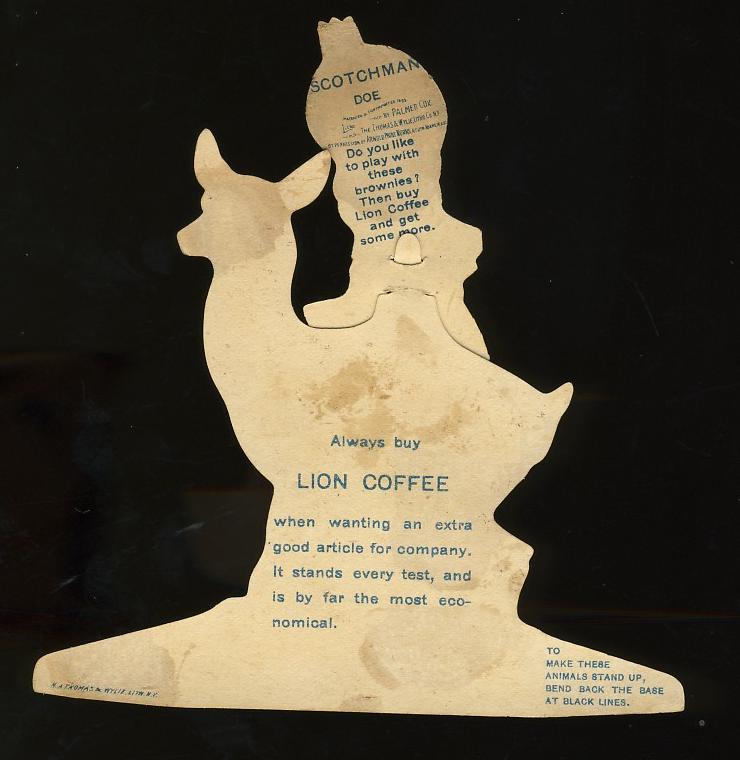 SCOTCHMAN
DOE
BY PALMER COX
THE THOMAS & WYLIE LITHO CO. N.Y.
BY PERMISSION OF ARNOLD PRINT WORKS,
Do you like
to play with
these
brownies?
Then buy
Lion Coffee
and get
some more.
Always buy
LION COFFEE
when wanting an extra
good article for company.
It stands every test, and
is by far the most eco-
nomical.
TO
MAKE THESE
ANIMALS STAND UP,
BEND BACK THE BASE
AT BLACK LINES.
THOMAS & WYLIE, LITH. N.Y.